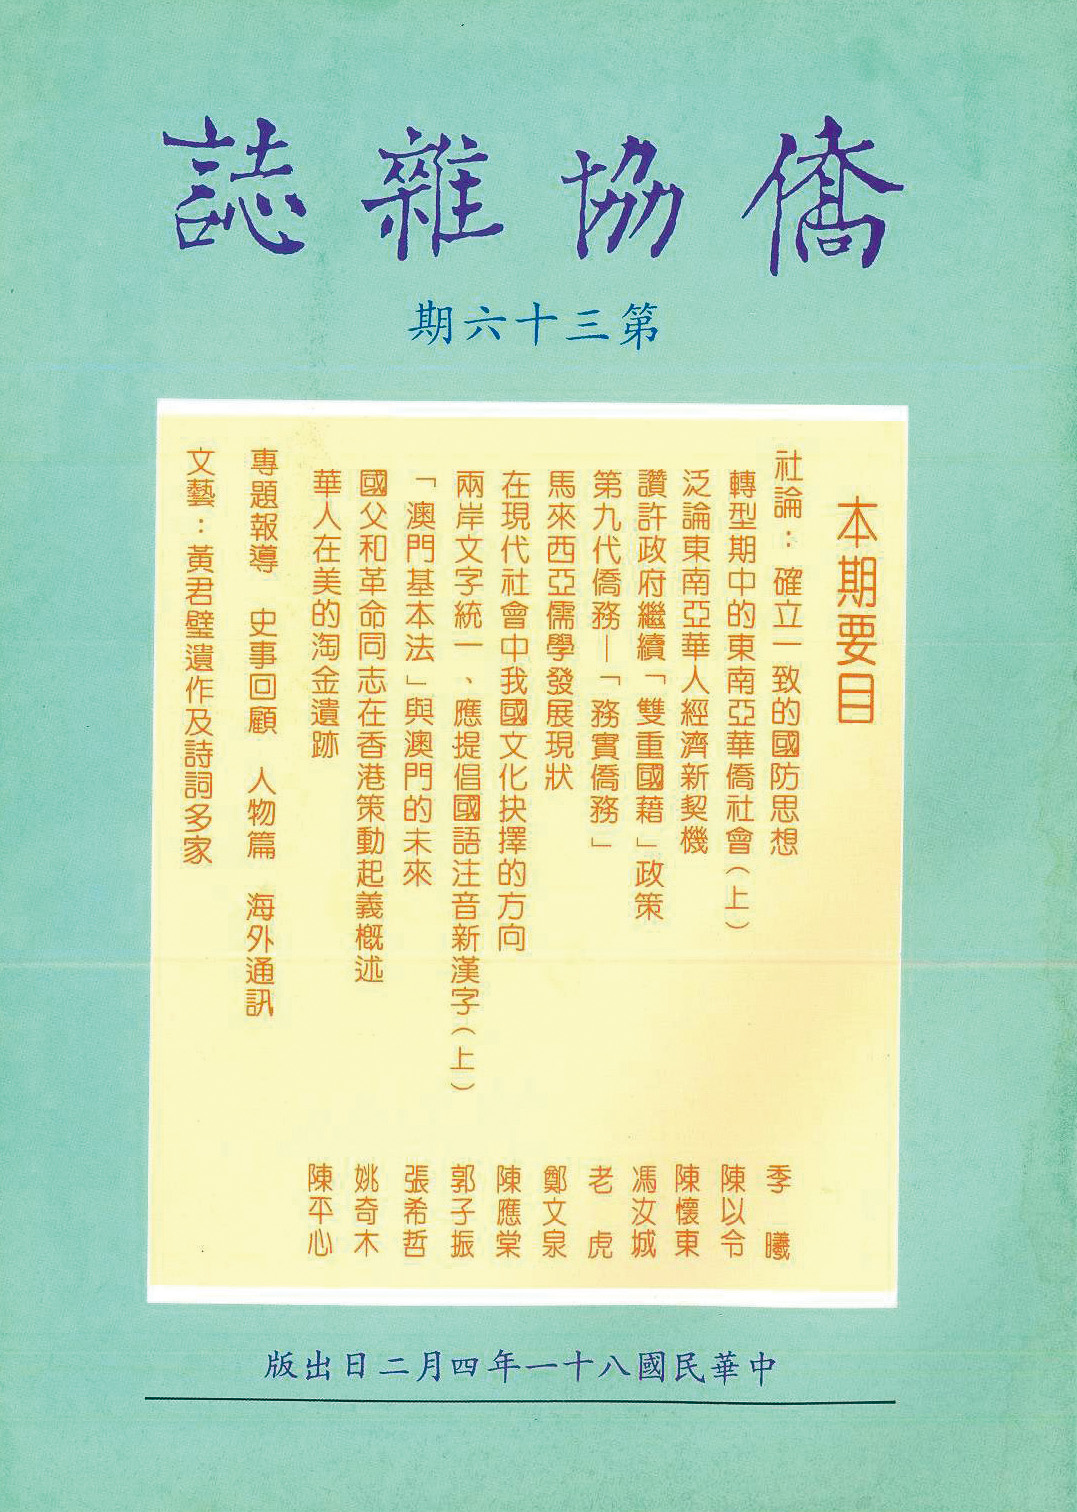 僑協雜誌
第三十六期
本期要目
社論：確立一致的國防思想 季曦
轉型期中的東南亞華僑社會（上） 陳以令
泛論東南亞華人經濟新契機 陳懷東
讚許政府繼續「雙重國藉」政策 馮汝城
第九代僑務—「務實僑務」 老虎
馬來西亞儒學發展現狀 鄭文泉
在現代社會中我國文化抉擇的方向 陳應棠
兩岸文字統一、應提倡國語注音新漢字（上） 郭子振
「澳門基本法」與澳門的未來 張希哲
國父和革命同志在香港策動起義概述 姚奇木
華人在美的淘金遺跡 陳平心
專題報導 史事回顧 人物篇 海外通訊
文藝：黃君璧遺作及詩詞多家
中華民國八十一年四月二日出版